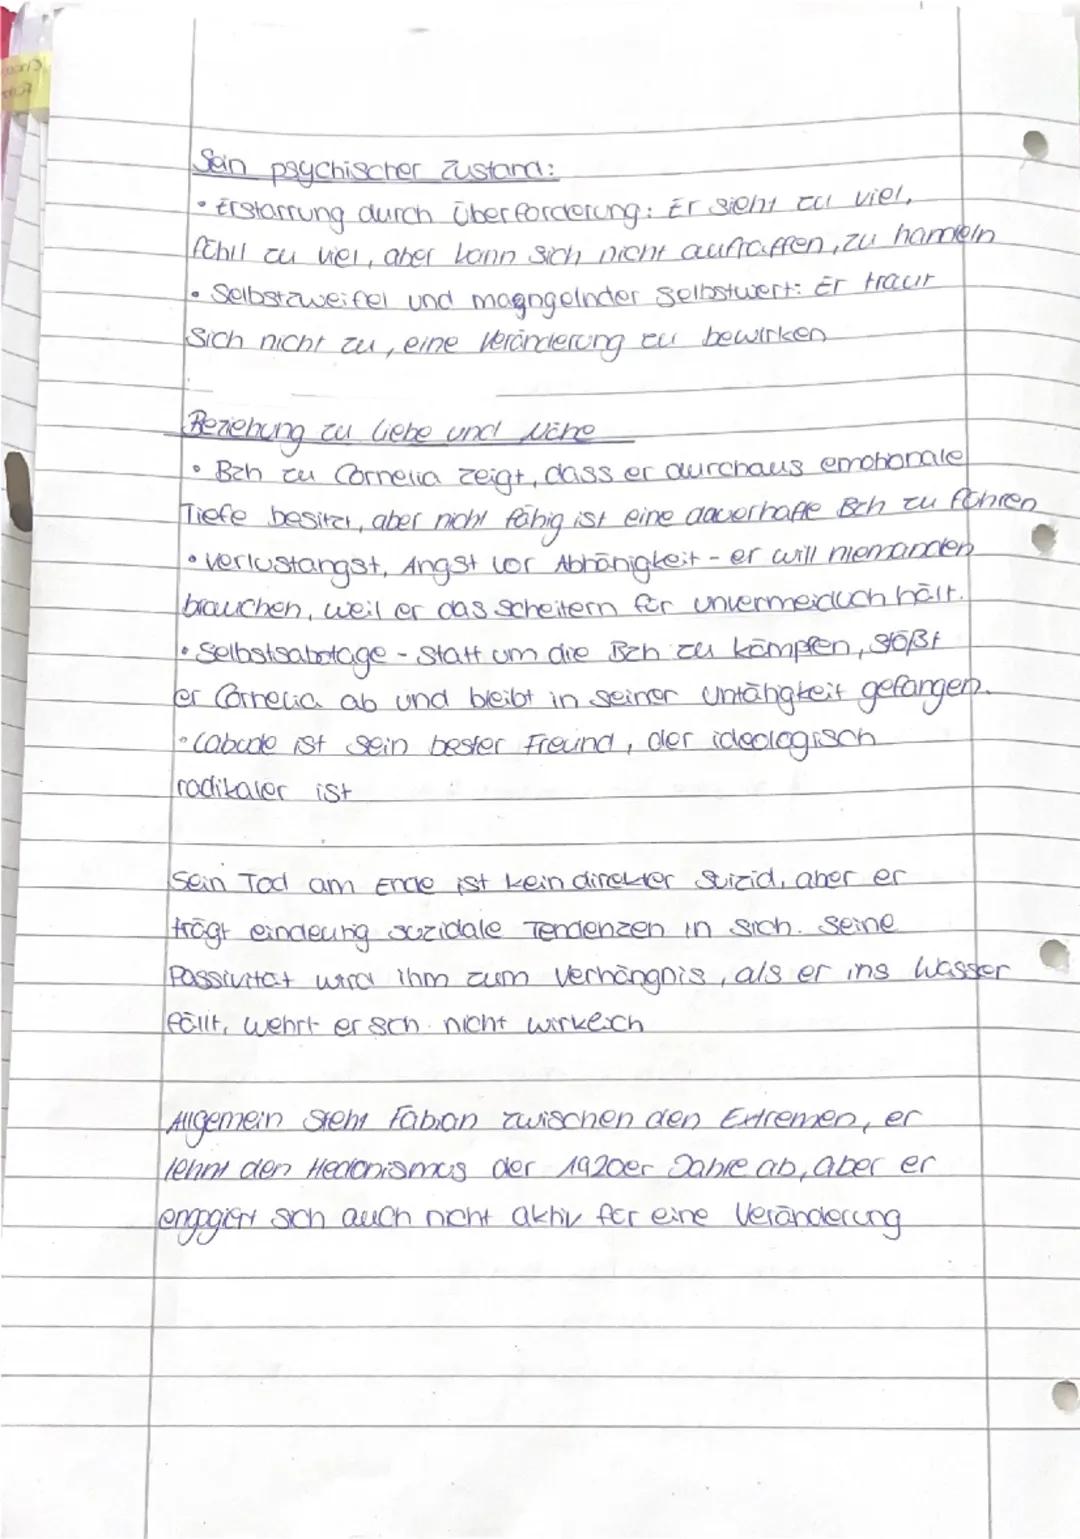 Sein psychischer Zustand:
• Erstarrung durch Überforderung: Er sieht zu viel,
fühlt zu viel, aber kann sich nicht aufraffen, zu handeln
• Selbstzweifel und mangngelnder Selbstwert: Er traut
sich nicht zu, eine Veränderung zu bewirken
Beziehung zu Liebe und Nähe
• Bzh zu Cornelia zeigt, dass er durchaus emotionale
Tiefe besitzt, aber nicht fähig ist eine dauerhafte Bzh zu führen
• Verlustangst, Angst vor Abhänigkeit - er will niemanden
brauchen, weil er das Scheitern für unvermeidlich hält.
• Selbstsabotage - Statt um die Bzh zu kämpfen, stößt
er Cornelia ab und bleibt in seiner Unfähgkeit gefangen.
• Labude ist sein bester Freund, der ideologisch
radikaler ist
Sein Tod am Ende ist kein direkter Suizid, aber er
trägt eindeutig suzidale Tendenzen in sich. Seine
Passivität wird ihm zum Verhängnis, als er ins Wasser
fällt, wehrt er sch nicht wirklich
Allgemein steht Fabian zwischen den Extremen, er
lehnt den Hedonismus der 1920er Jahre ab, aber er
engagiert sich auch nicht aktiv für eine Veränderung